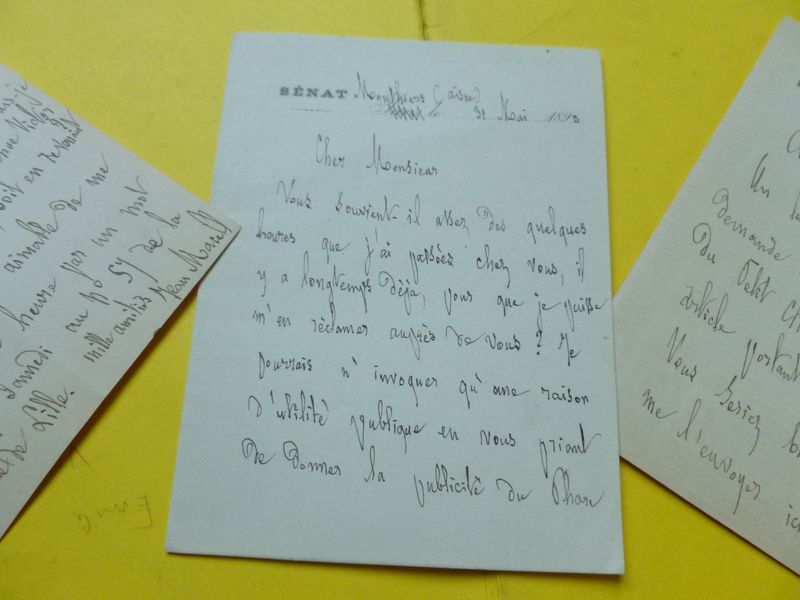 SÉNAT Monthiers (aisne)
31 Mai 1893
Cher Monsieur
Vous souvient-il assez des quelques
heures que j'ai passées chez vous, il
y a longtemps déjà, pour que je puisse
m'en réclamer auprès de vous? Je
pourrais n'invoquer qu'une raison
d'utilité publique en vous priant
de donner la publicité du Phare
soit en
aimable de me
heure par un mot
Samedi au no 57 de la
de Lille. mille amitiés
Jean Macé
Un
demande
du Petit
article portant
Vous seriez
me l'envoyer ici